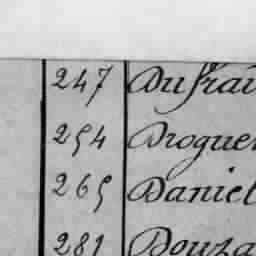 247 Dufrai
254 Droguer
265 Daniel
281 Douza